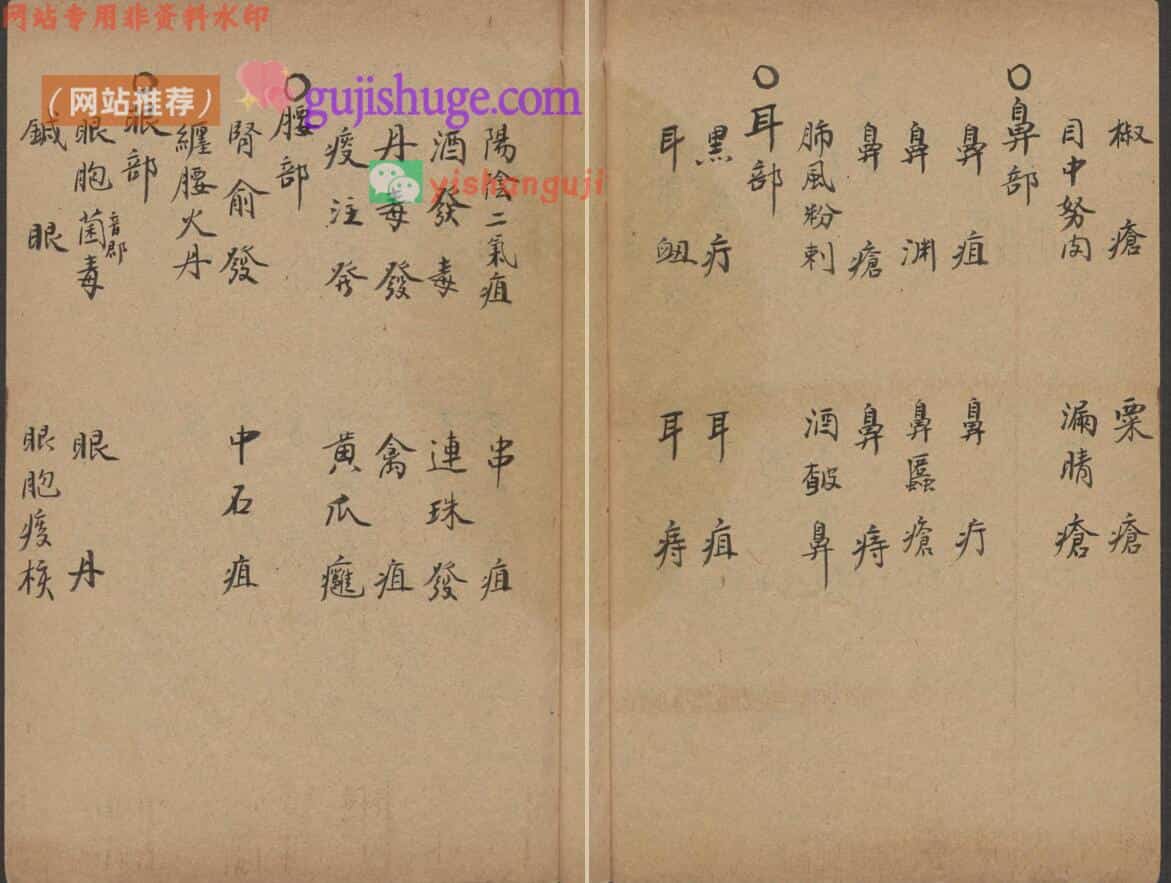 网站专用非资料水印
（网站推荐）
gujishuge.com
yishanguji
椒瘡 粟瘡
目中努肉 漏睛瘡
○鼻部
鼻疽 鼻疔
鼻淵 鼻䘌瘡
鼻瘡 鼻痔
肺風粉刺 酒皶鼻
○耳部
黑疔 耳疽
耳衄 耳痔
陽陰二氣疽 串疽
酒發毒 連珠發
丹毒發 禽疽
痰注發 黃瓜癰
○腰部
腎俞發 中石疽
纏腰火丹
○眼部
眼胞菌毒 音郡 眼丹
鍼眼 眼胞痰核